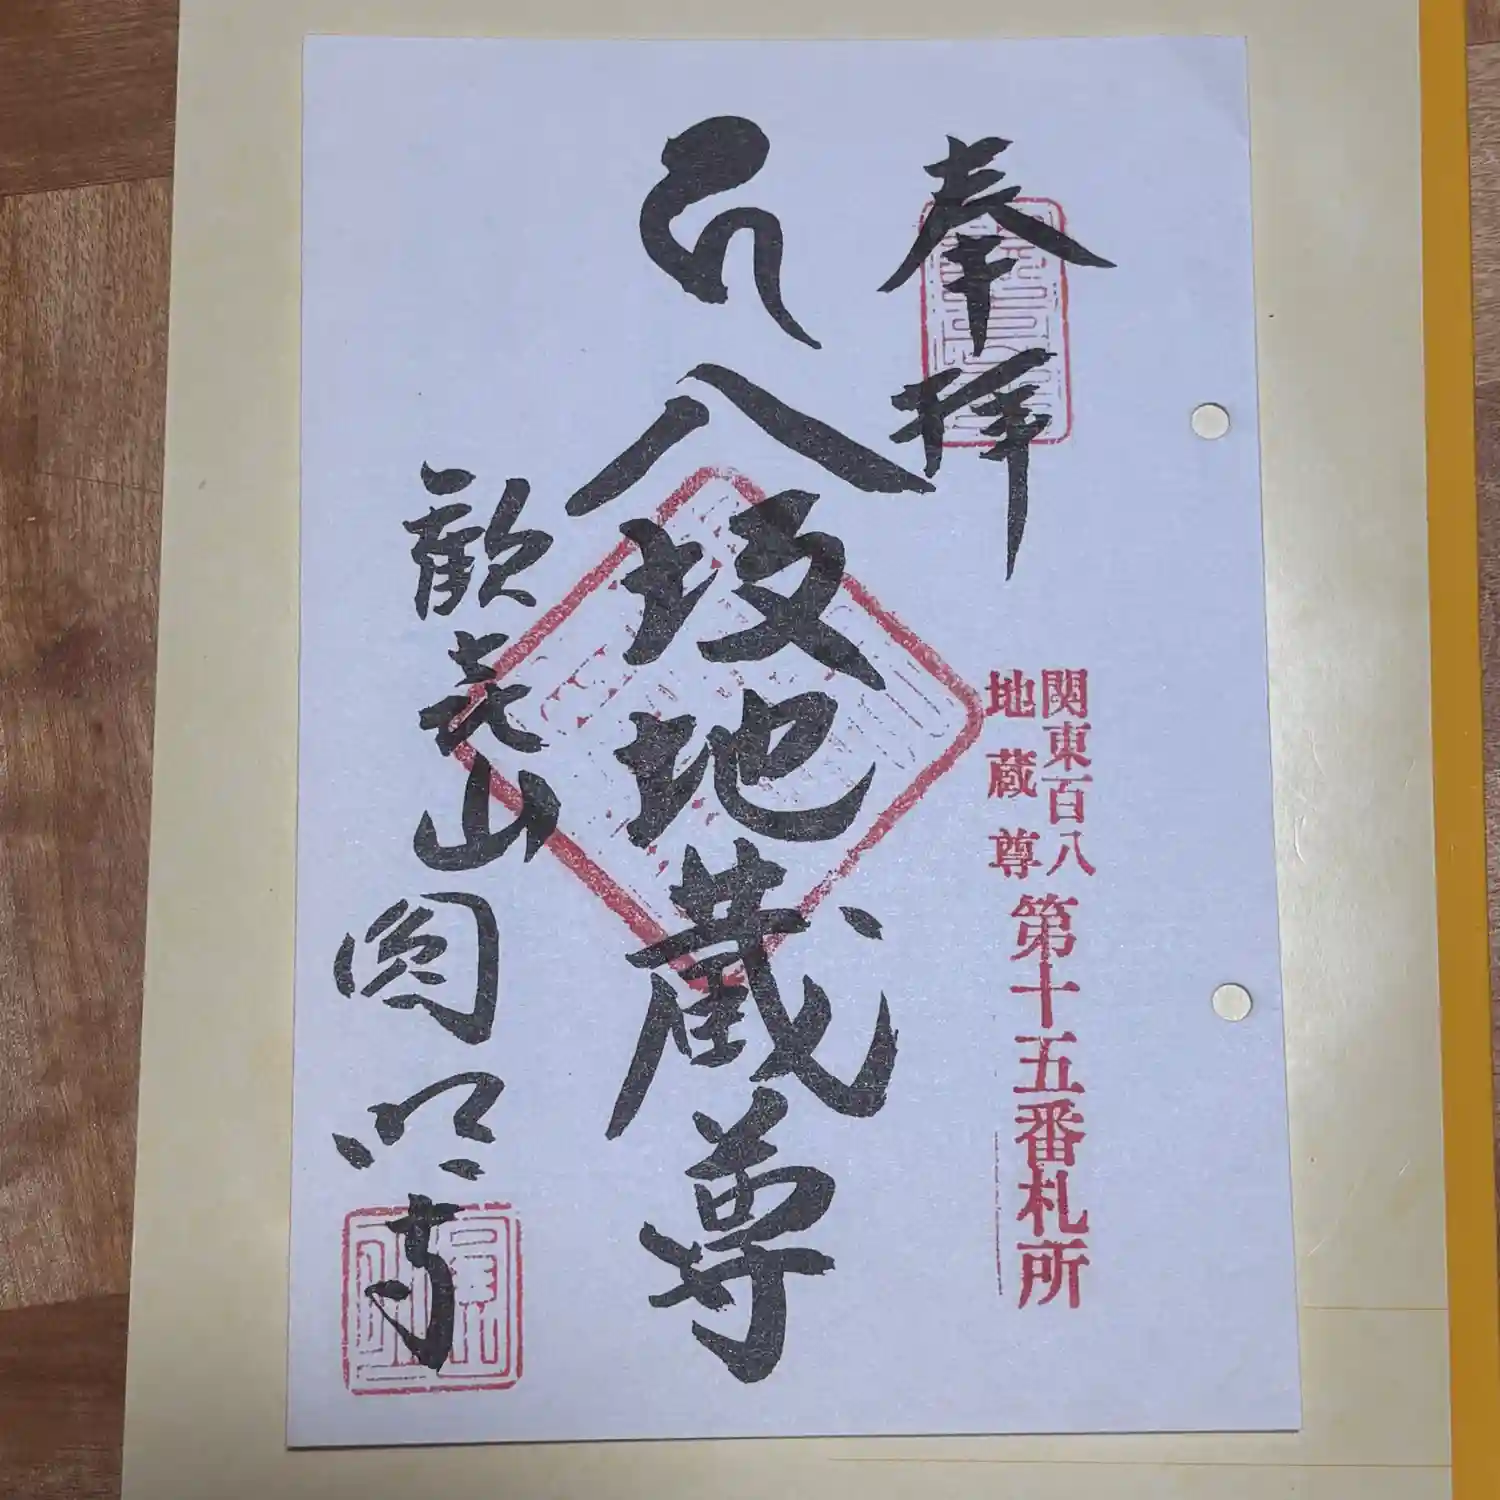 奉拝
関東百八
地蔵尊
第十五番札所
八坂地蔵尊
歓喜山圓 寺